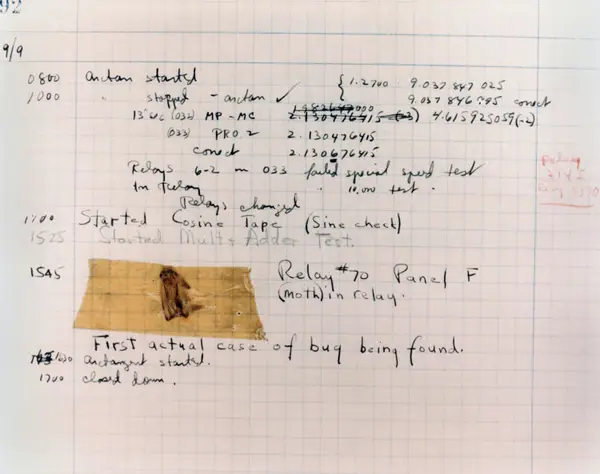 92
9/9
0800 arctan started { 1.2700 9.037 847 025
1000 " stopped - arctan ✓ 9.037 846 995 correct
13"uc (032) MP - MC 2.130476415 (-3) 4.615925059(-2)
(033) PRO 2 2.130476415
correct 2.130676415
Relays 6-2 in 033 failed special speed test
In Relay " 10,000 test .
Relays changed
1100 Started Cosine Tape (Sine check)
1525 Started Mult + Adder Test.
1545 Relay #70 Panel F
(moth) in relay.
First actual case of bug being found.
1630 arctangent started.
1700 closed down.
Relay
2145
Relay